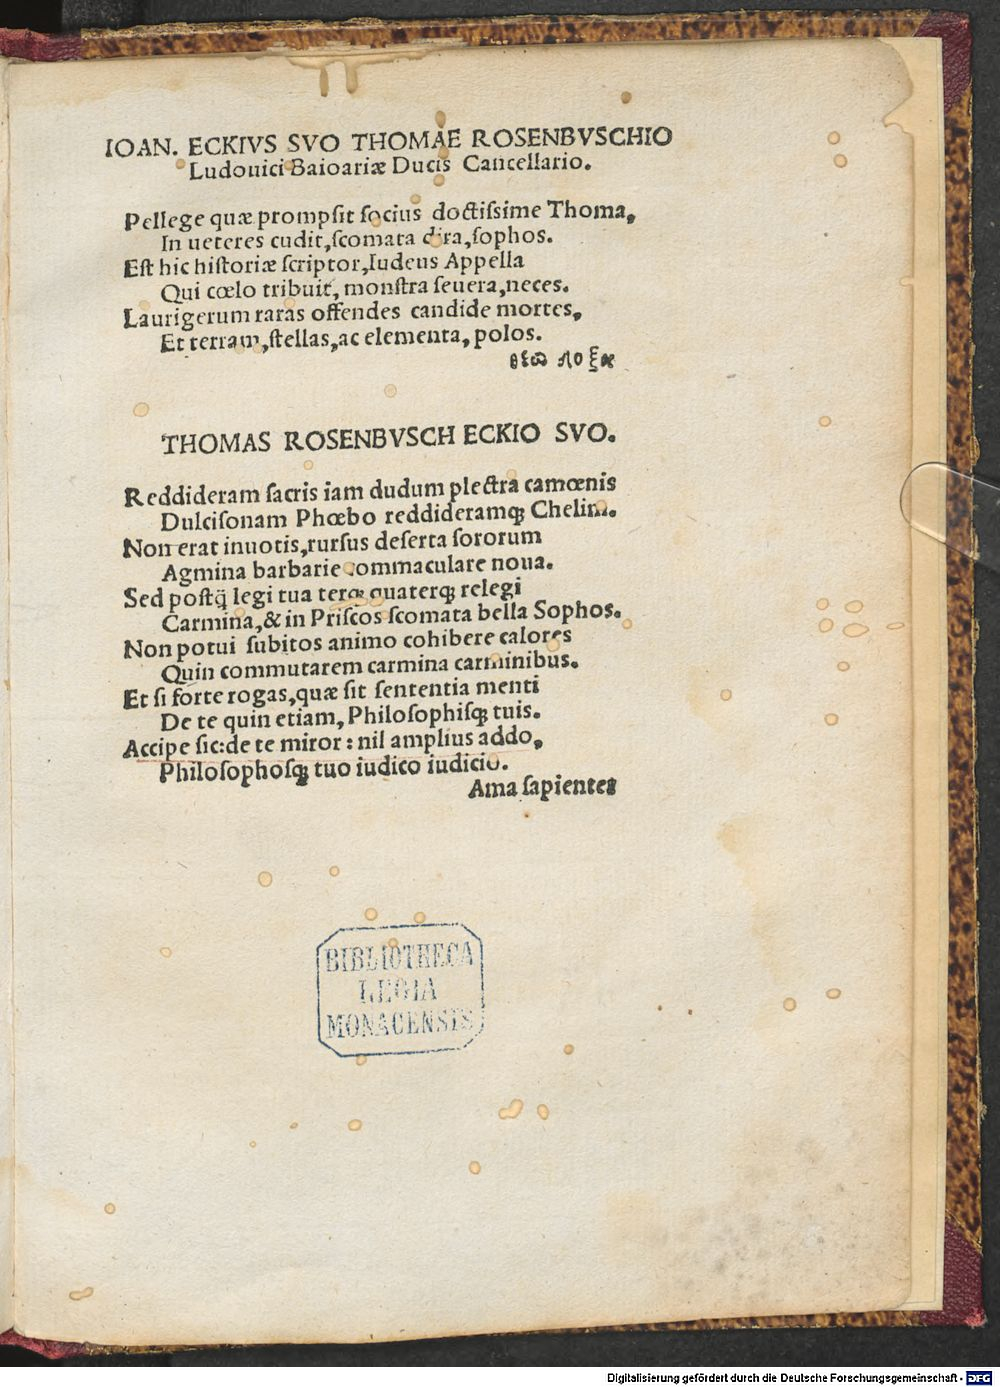 IOAN. ECKIVS SVO THOMAE ROSENBVSCHIO
Ludouici Baioariæ Ducis Cancellario.
Pellege quæ prompſit ſocius doctiſsime Thoma,
In ueteres cudit, ſcomata dira, ſophos.
Eſt hic hiſtoriæ ſcriptor, Iudeus Appella
Qui cœlo tribuit, monſtra ſeuera, neces.
Laurigerum raras offendes candide mortes,
Et terram, ſtellas, ac elementa, polos.
θεῶ λοξα
THOMAS ROSENBVSCH ECKIO SVO.
Reddideram ſacris iam dudum plectra camœnis
Dulciſonam Phœbo reddideramq; Chelim.
Non erat inuotis, rurſus deſerta ſororum
Agmina barbarie commaculare noua.
Sed poſtq̃ legi tua terq; quaterq; relegi
Carmina, & in Priſcos ſcomata bella Sophos.
Non potui ſubitos animo cohibere calores
Quin commutarem carmina carminibus.
Et ſi forte rogas, quæ ſit ſententia menti
De te quin etiam, Philoſophiſq; tuis.
Accipe ſic: de te miror: nil amplius addo,
Philoſophoſq; tuo iudico iudicio.
Ama ſapientes
BIBLIOTHECA
REGIA
MONACENSIS
Digitalisierung gefördert durch die Deutsche Forschungsgemeinschaft - DFG